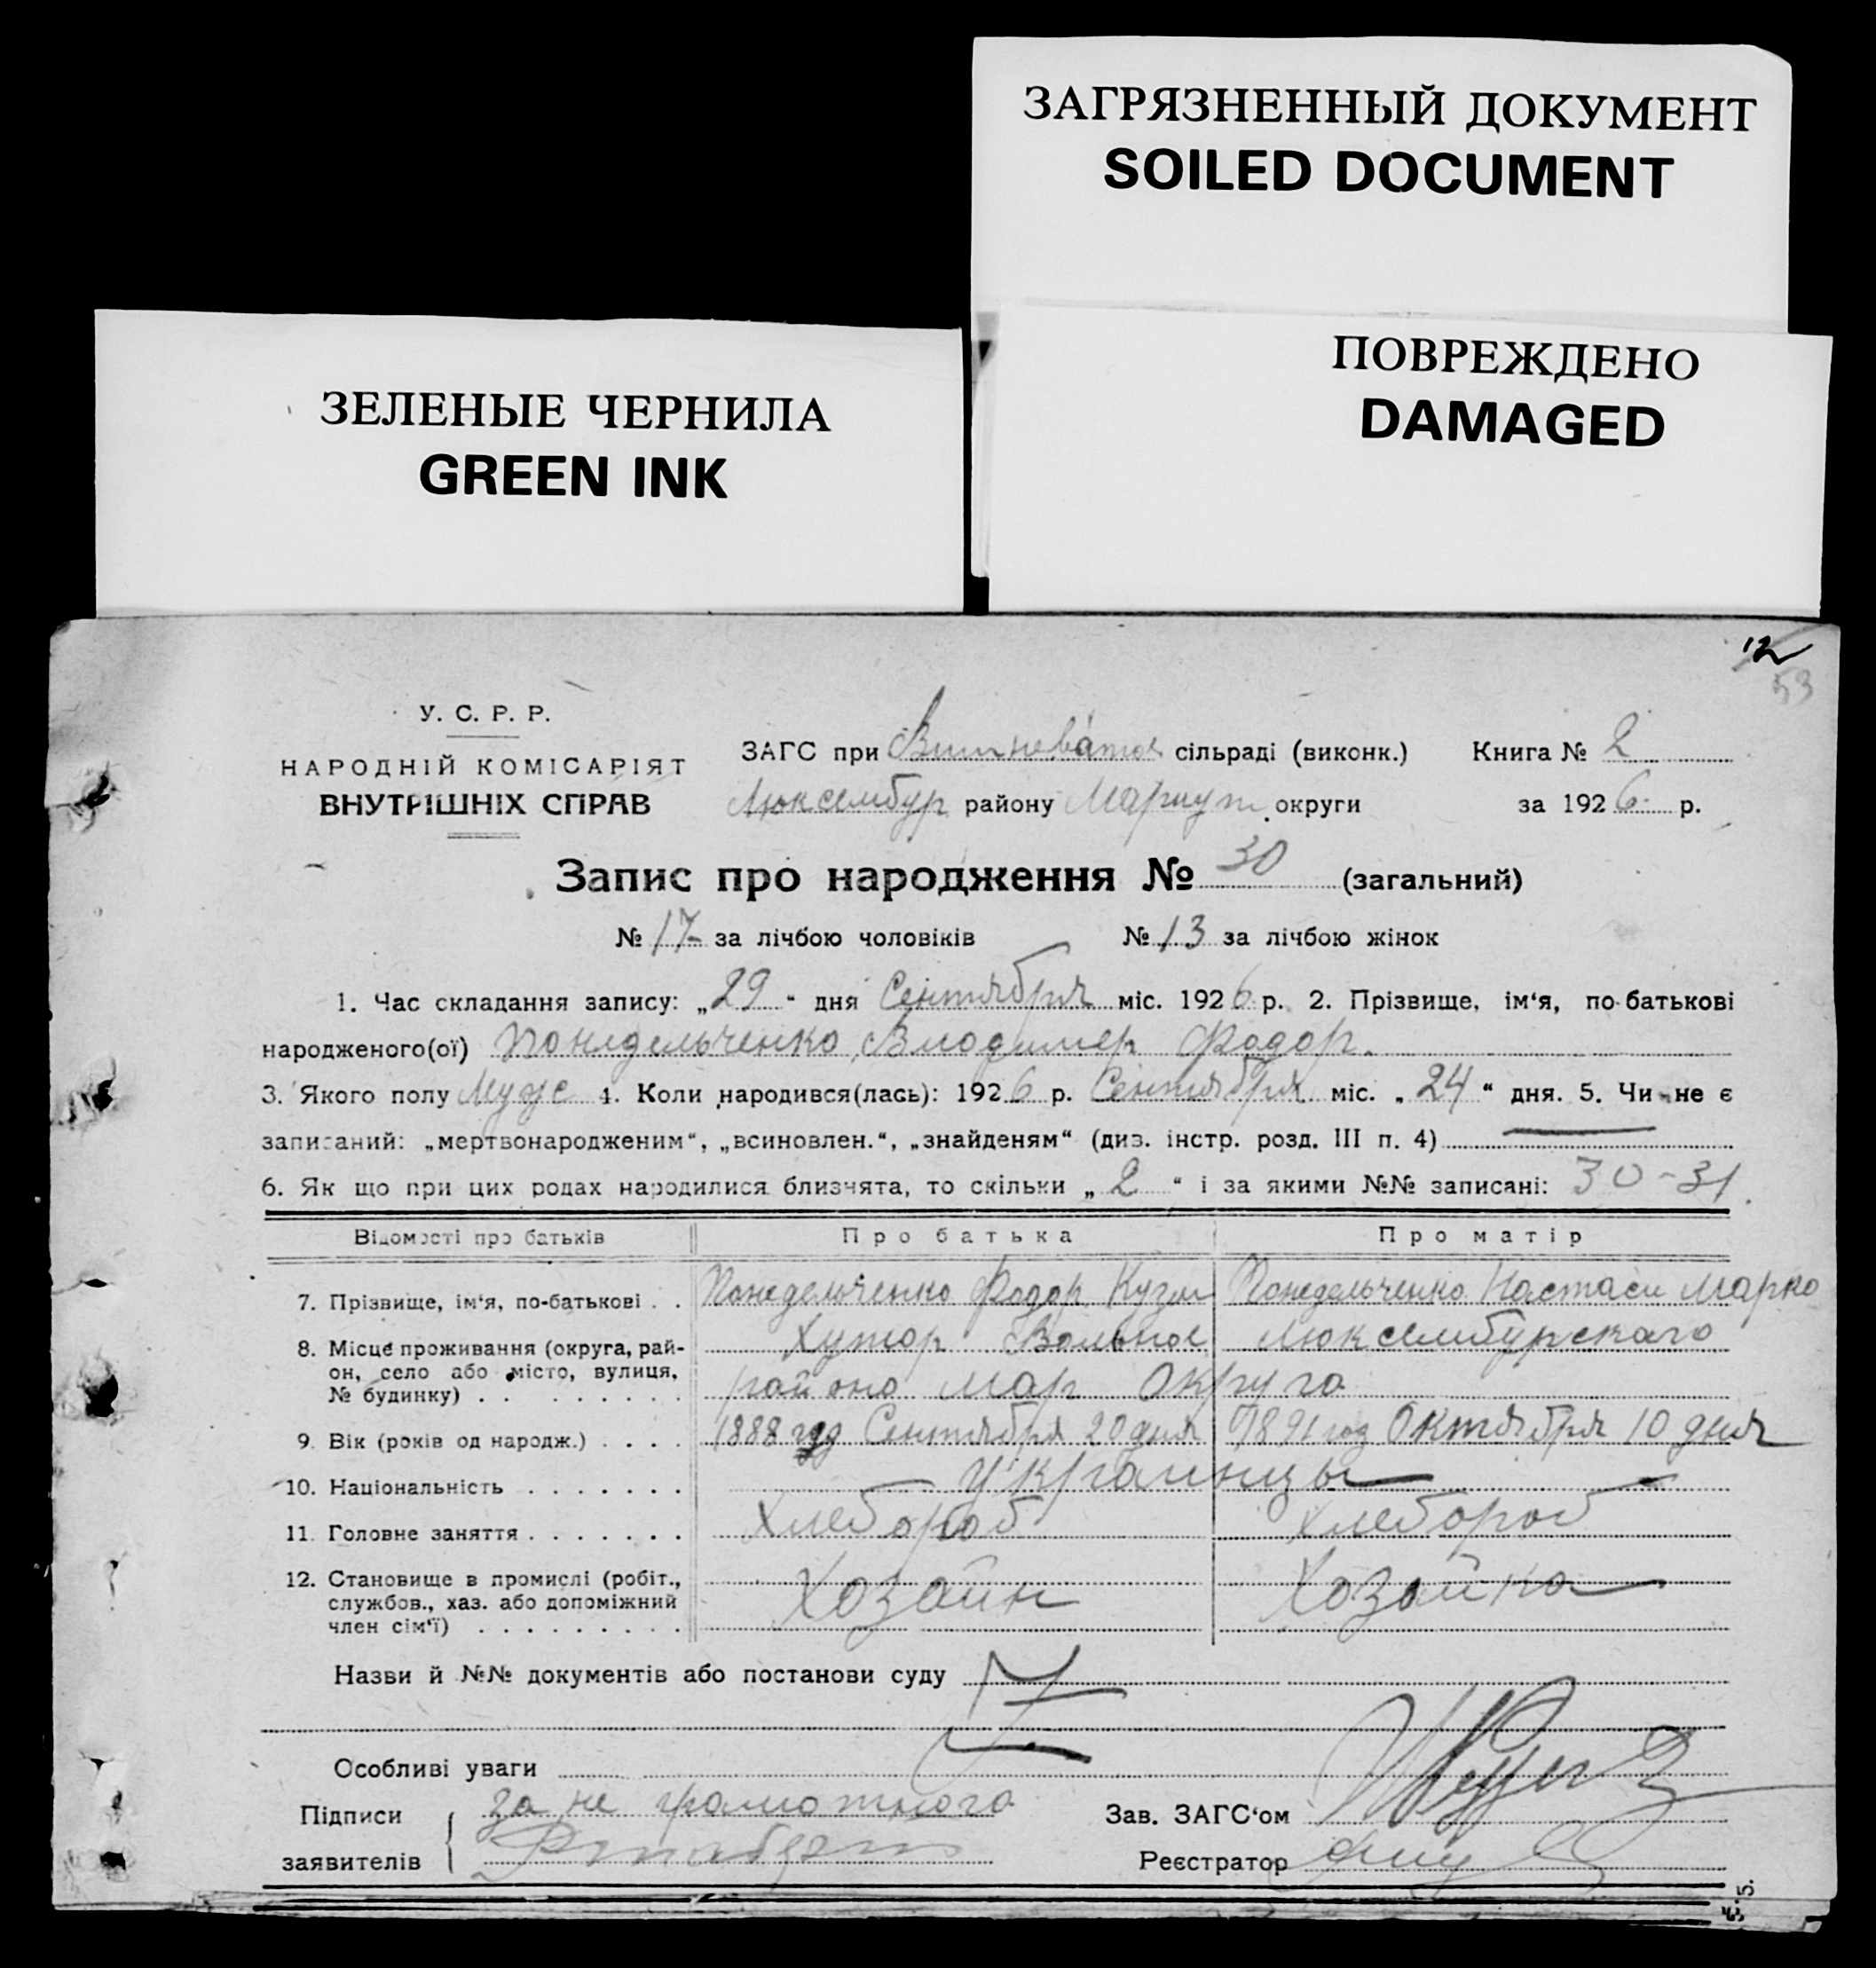 ЗАГРЯЗНЕННЫЙ ДОКУМЕНТ
SOILED DOCUMENT
ПОВРЕЖДЕНО
DAMAGED
ЗЕЛЕНЫЕ ЧЕРНИЛА
GREEN INK
12
53
У. С. Р. Р.
НАРОДНІЙ КОМІСАРІЯТ
ВНУТРІШНІХ СПРАВ
ЗАГС при Вишневатое сільраді (виконк.) Книга № 2
Люксембур району Мариуп. округи за 1926 р.
Запис про народження № 30 (загальний)
№ 17 за лічбою чоловіків № 13 за лічбою жінок
1. Час складання запису: „29“ дня Сентября міс. 1926 р. 2. Прізвище, ім‘я, по-батькові
народженого(ої) Понедельченко Владимер Федор.
3. Якого полу Мужс 4. Коли народився(лась): 1926 р. Сентября міс. „24“ дня. 5. Чи не є
записаний: „мертвонародженим“, „всиновлен.“, „знайденям“ (див. інстр. розд. III п. 4)
6. Як що при цих родах народилися близнята, то скільки „2“ і за якими №№ записані: 30-31.
Відомості про батьків Про батька Про матір
7. Прізвище, ім‘я, по-батькові . . Понедельченко Федор Кузм Понедельченко Настаси Марко
8. Місце проживання (округа, рай- Хутор Вольное Люксембурскаго
он, село або місто, вулиця,
№ будинку) . . района Мар Округа
9. Вік (років од народж.) . . . . 1888 год Сентября 20 дня 1891 год Октября 10 дня
10. Національність . . . . . . . Украинцы
11. Головне заняття . . . . . . . Хлебороб Хлебороб
12. Становище в промислі (робіт.,
службов., хаз. або допоміжний Хозаин Хозайка
член сім‘ї) . . . . . . . . .
Назви й №№ документів або постанови суду
Особливі уваги
Підписи за не грамотного Зав. ЗАГС‘ом
заявителів Реєстратор